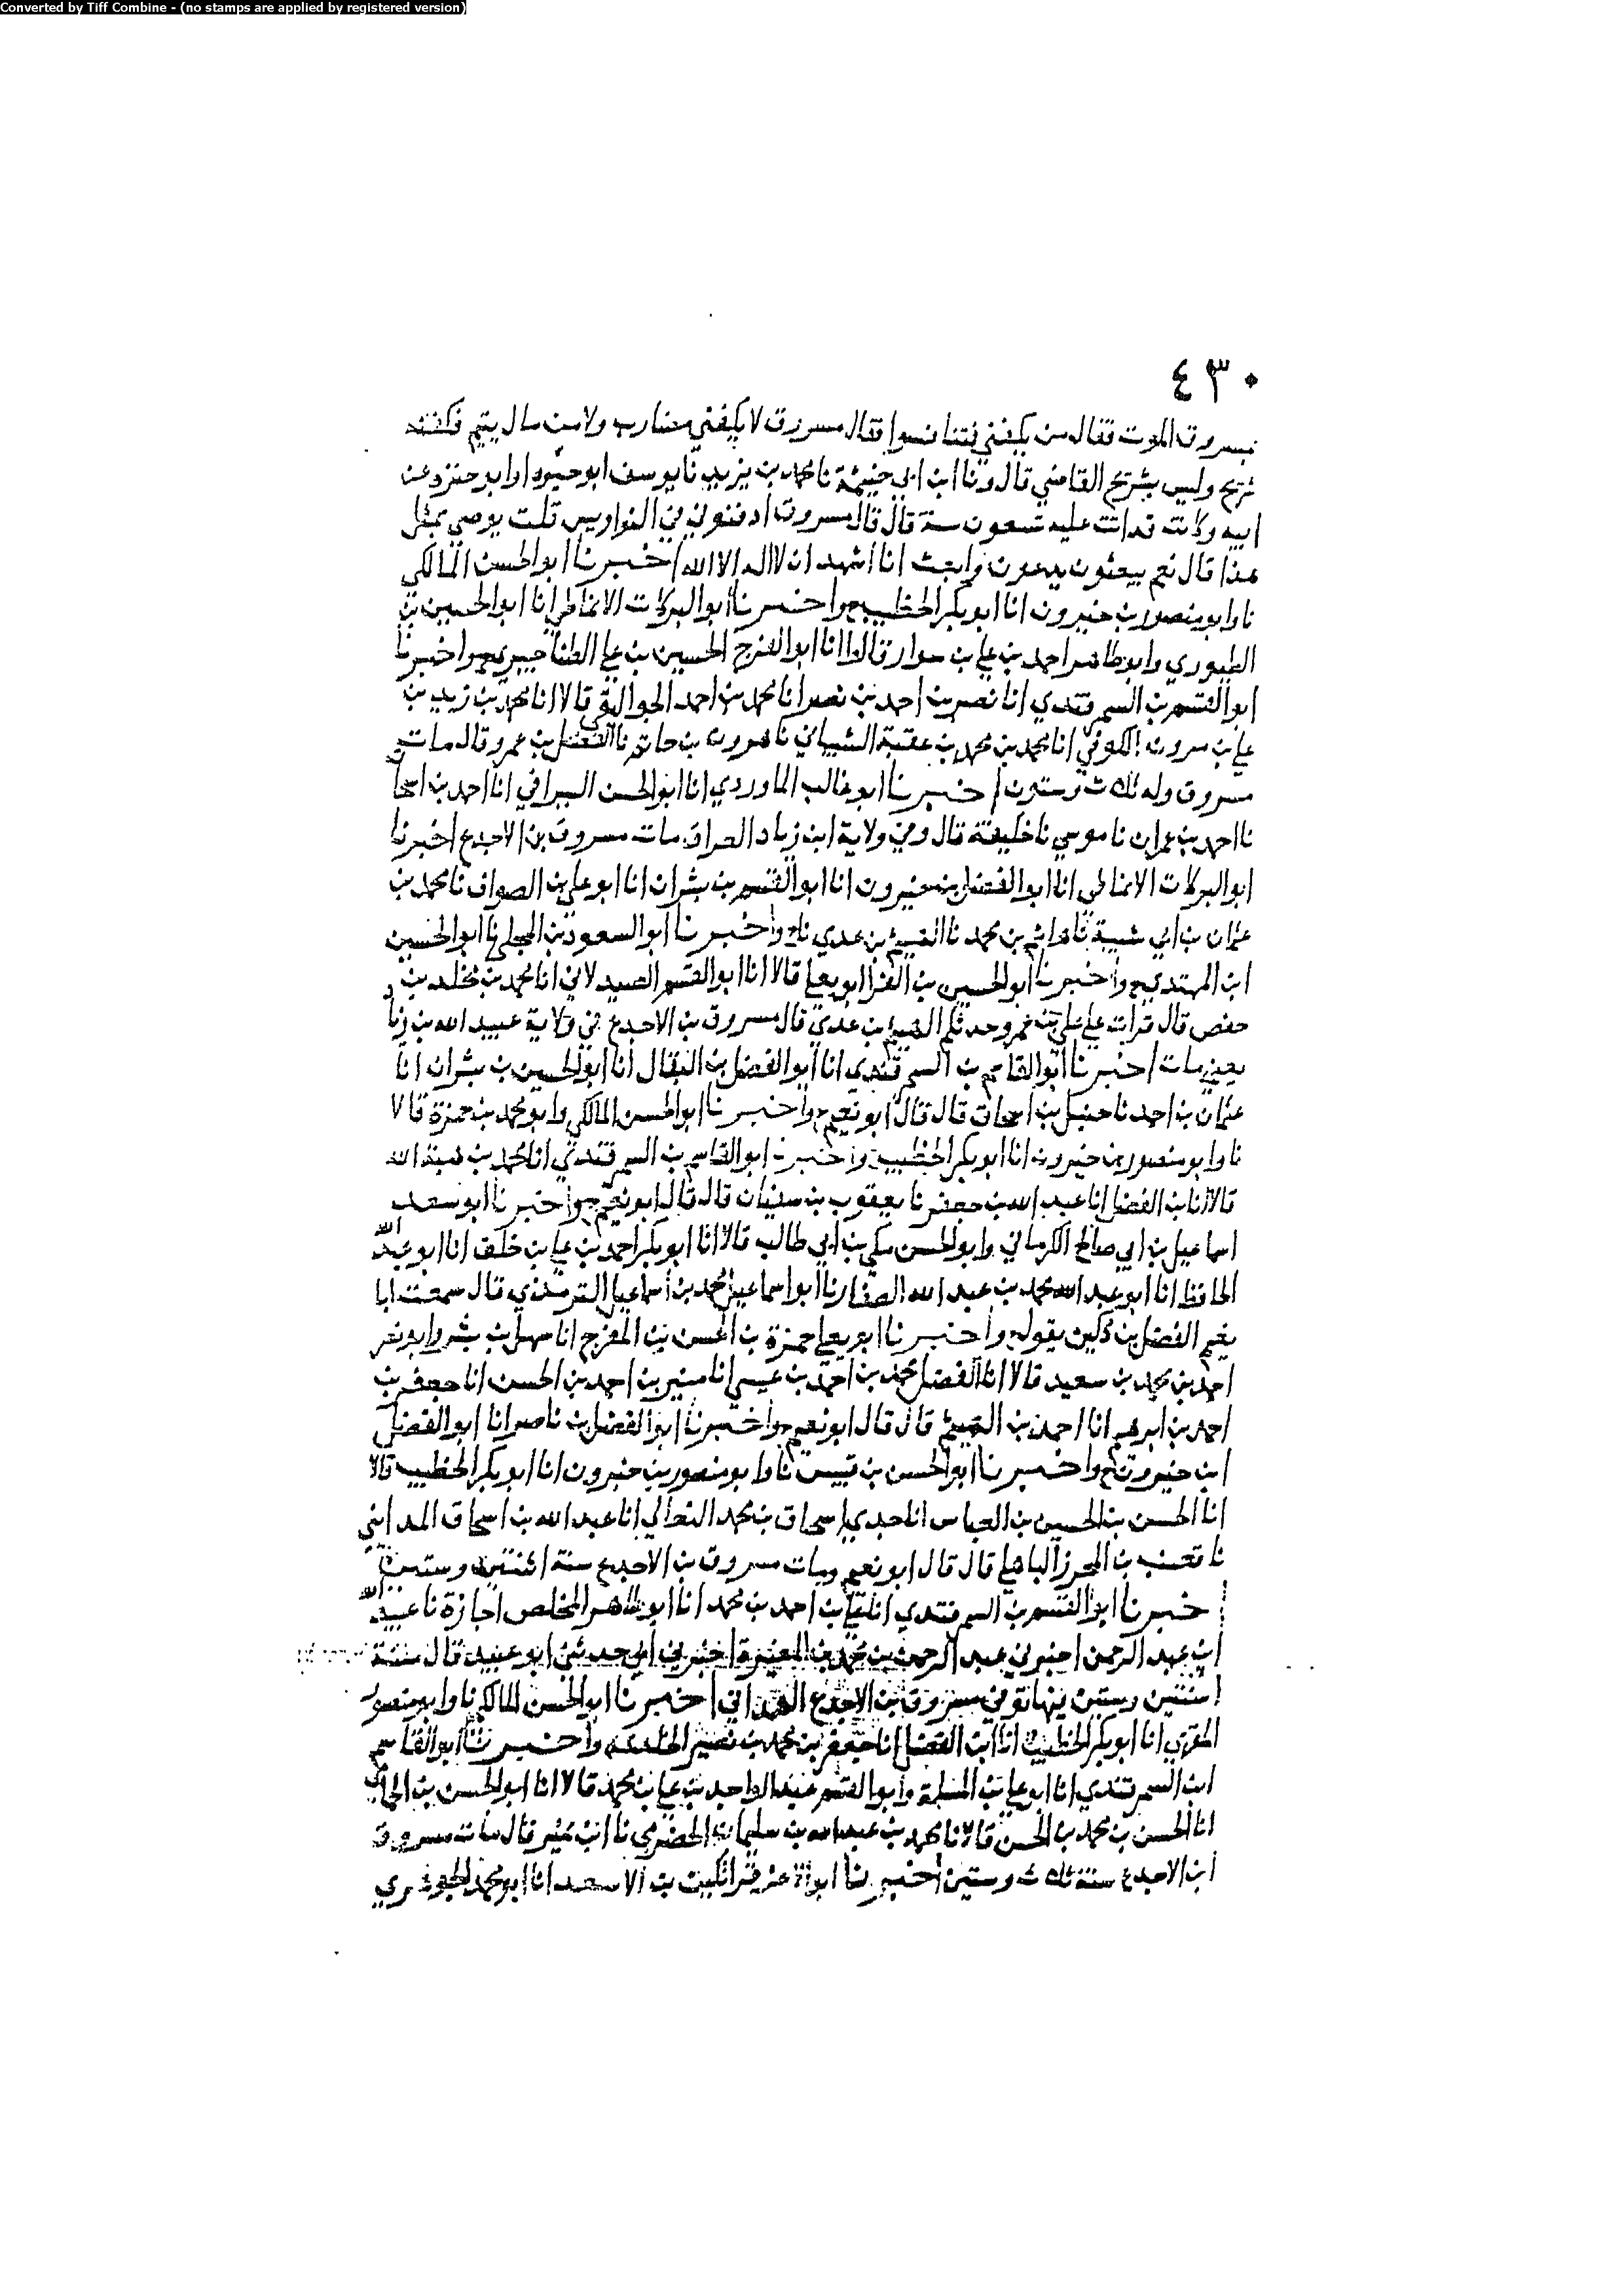 Converted by Tiff Combine - (no stamps are applied by registered version)
٤٣٠
بمسروق الموت فقال من يكفنني فتنافسوا فقال مسروق لا يكفني مضارب ولا من مال يتيم فكفنه
شريح وليس بشريح القاضي قال ونا ابن ابي خيثمة نا محمد بن يزيد نا يوسف ابو حيوه او ابو حنزه عن
ابيه وكانت قد اتت عليه تسعون سنة قال قال مسروق ادفنوني في النواويس قلت يوصي بمثل
هذا قال نعم يبعثون يدعون وابعث انا اشهد ان لا اله الا الله اخبرنا ابو الحسن المالكي
نا وابو منصور بن خيرون انا ابو بكر الخطيب ح واخبرنا ابو البركات الانماطي انا ابو الحسين بن
الطيوري وابو طاهر احمد بن علي بن سوار قالوا انا ابو الفرج الحسين بن علي الطناجيري ح واخبرنا
ابو القسم بن السمرقندي انا نصر بن احمد بن نصر انا محمد بن احمد الجواليقي قالا انا محمد بن زيد بن
علي بن مرون الكوفي انا محمد بن محمد بن عقبة الشيباني نا هرون بن حاتم نا الفضل بن عمرو قال مات
مسروق وله ثلاث وستون اخبرنا ابو غالب الماوردي انا ابو الحسن السيرافي انا احمد بن اسحاق
نا احمد بن عمران نا موسي نا خليفة قال وفي ولاية ابن زياد العراق مات مسروق بن الاجدع اخبرنا
ابو البركات الانماطي انا ابو الفضل بن خيرون انا ابو القسم بن بشران انا ابو علي بن الصواف نا محمد بن
عثمان بن ابي شيبة نا هاشم بن محمد نا الهيثم بن عدي ح واخبرنا ابو السعود بن المجلي نا ابو الحسين
ابن المهتدي ح واخبرنا ابو الحسين بن الفرا ابو يعلى قالا انا ابو القسم الصيدلاني انا محمد بن مخلد بن
حفص قال قرات على علي بن عمرو حدثكم الهيثم بن عدي قال مسروق بن الاجدع في ولاية عبيد الله بن زياد
يعني مات اخبرنا ابو القاسم بن السمرقندي انا ابو الفضل بن البقال انا ابو الحسين بن بشران انا
عثمان بن احمد نا حنبل بن اسحاق قال قال ابو نعيم ح واخبرنا ابو الحسن المالكي وابو محمد بن حمزة قالا
نا وابو منصور بن خيرون انا ابو بكر الخطيب ح واخبرنا ابو القاسم بن السمرقندي انا محمد بن هبة الله
قالا انا بن الفضل انا عبد الله بن جعفر نا يعقوب بن سفيان قال قال ابو نعيم ح واخبرنا ابو سعد
اسماعيل بن ابي صالح الكرماني وابو الحسن مكي بن ابي طالب قالا انا ابو بكر احمد بن علي بن خلف انا ابو عبد الله
الحافظ انا ابو عبد الله محمد بن عبد الله الصفار نا ابو اسماعيل محمد بن اسماعيل الترمذي قال سمعت ابا
نعيم الفضل بن دكين يقول ح واخبرنا ابو يعلى حمزة بن الحسن بن المفرج انا سهل بن بشر وابو نصر
احمد بن محمد بن سعيد قالا انا الفضل محمد بن احمد بن عيسي انا منير بن احمد بن الحسن انا جعفر بن
احمد بن ابرهيم انا احمد بن الهيثم قال قال ابو نعيم ح واخبرنا ابو الفضل بن ناصر انا ابو الفضل
ابن خيرون ح واخبرنا ابو الحسن بن قبيس نا وابو منصور بن خيرون انا ابو بكر الخطيب قالا
انا الحسن بن الحسين بن العباس انا جدي اسحاق بن محمد النعالي انا عبد الله بن اسحاق المدايني
نا قعنب بن المحرز الباهلي قال قال ابو نعيم ومات مسروق بن الاجدع سنة اثنتين وستين
اخبرنا ابو القسم بن السمرقندي انا علي بن احمد بن محمد انا ابو طاهر المخلص اجازة نا عبيد الله
ابن عبد الرحمن اخبرني عبد الرحمن بن محمد بن المغيرة اخبرني ابي حدثني ابو عبيد قال سنة
اثنتين وستين فيها توفي مسروق بن الاجدع الهمداني اخبرنا ابو الحسن المالكي نا وابو منصور
المقري انا ابو بكر الخطيب انا ابن الفضل انا جعفر بن محمد بن نصير الخلدي ح واخبرنا ابو القاسم
ابن السمرقندي انا ابو علي بن المسلمة وابو القسم عبد الواحد بن علي بن محمد قالا انا ابو الحسن بن الحمامي
انا الحسن بن محمد بن الحسن قالا نا محمد بن عبد الله بن سليمان الحضرمي نا ابن نمير قال مات مسروق
ابن الاجدع سنة ثلاث وستين اخبرنا ابو الاعز قراتكين بن الاسعد انا ابو محمد الجوهري